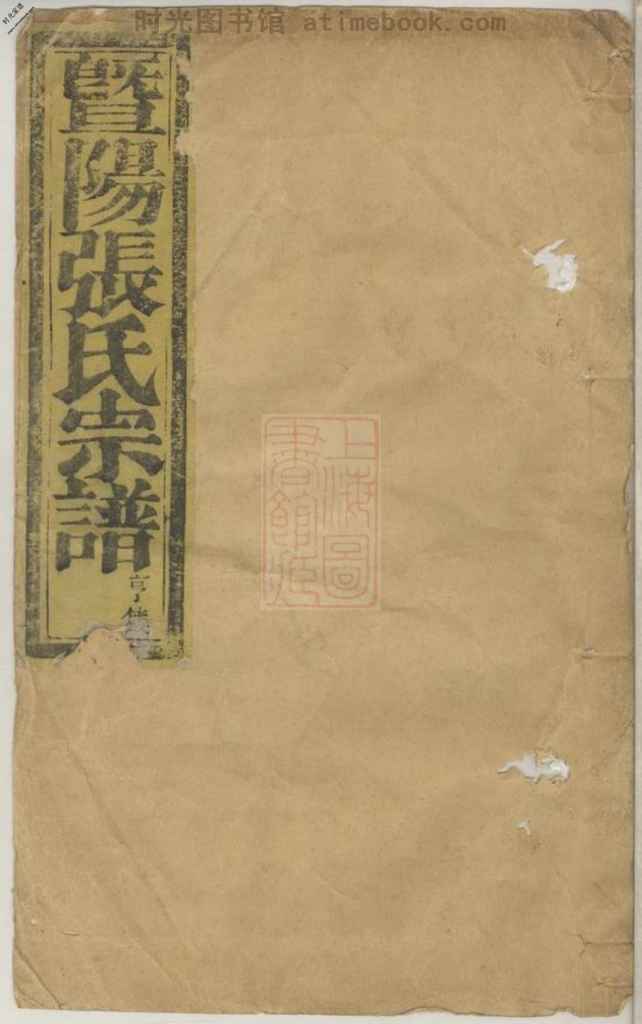 时光图书馆 atimebook.com
暨陽張氏宗譜
亨
上海圖
書館